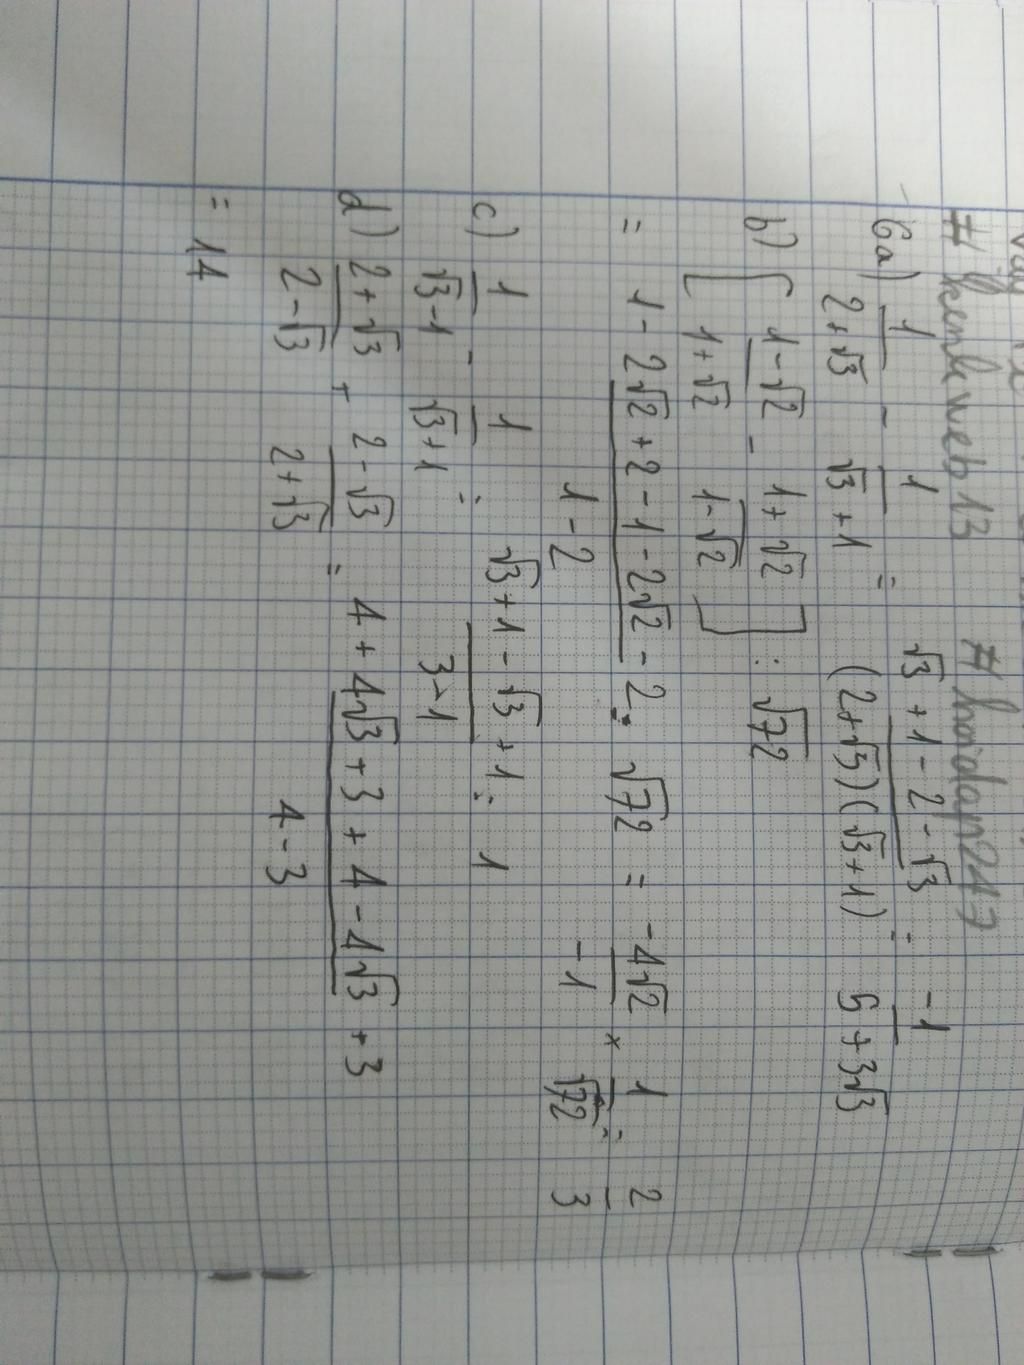 # kenhweb13 # hoidap247
6a) 1/(2+√3) - 1/(√3+1) = (√3+1-2-√3)/((2+√3)(√3+1)) = -1/(5+3√3)
b) [(1-√2)/(1+√2) - (1+√2)/(1-√2)] : √72
= (1-2√2+2-1-2√2-2)/(1-2) : √72 = -4√2/-1 × 1/√72 = 2/3
c) 1/(√3-1) - 1/(√3+1) = (√3+1-√3+1)/(3-1) = 1
d) (2+√3)/(2-√3) + (2-√3)/(2+√3) = (4+4√3+3+4-4√3+3)/(4-3)
= 14